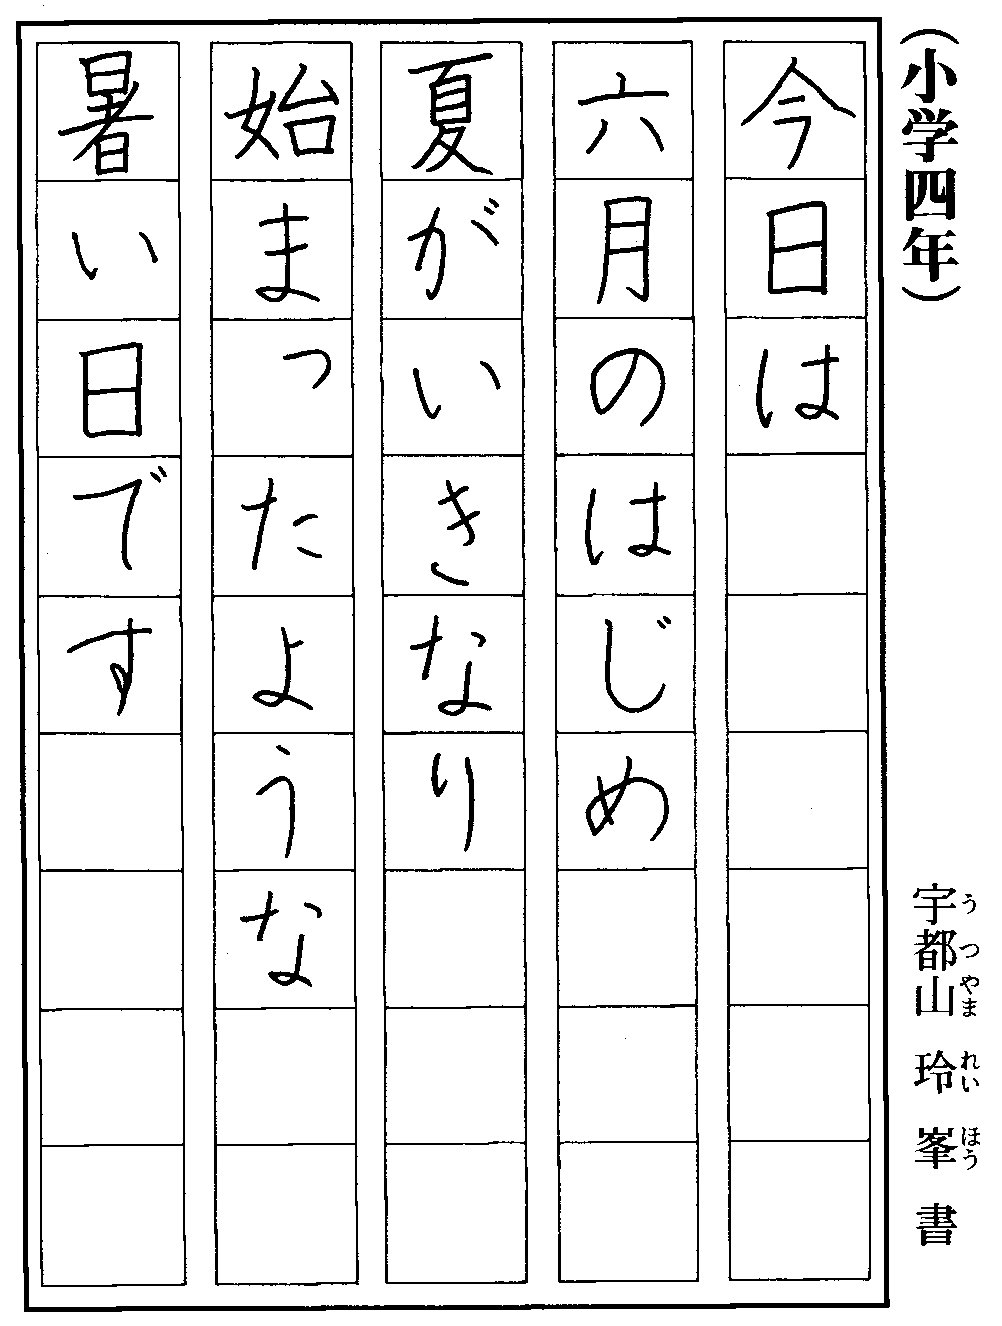 （小学四年）
宇都山　玲峯　書
うつやま　れいほう
今日は
六月のはじめ
夏がいきなり
始まったような
暑い日です